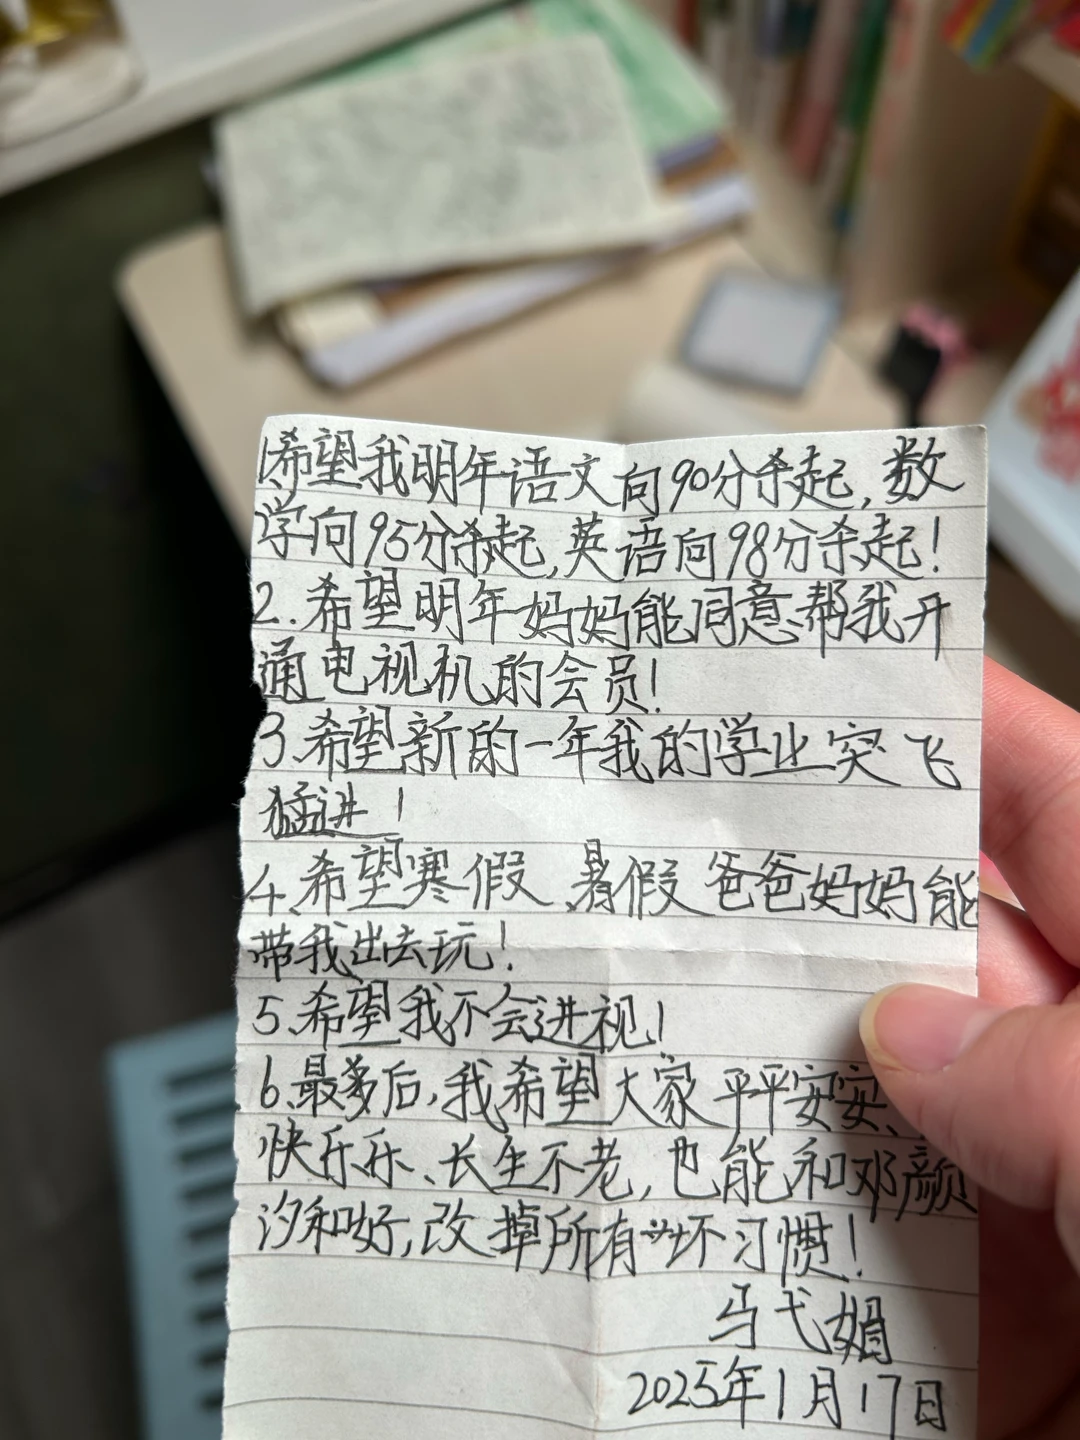 1.希望我明年语文向90分杀起,数
学向95分杀起,英语向98分杀起!
2.希望明年妈妈能同意帮我开
通电视机的会员!
3.希望新的一年我的学业突飞
猛进!
4.希望寒假、暑假爸爸妈妈能
带我出去玩!
5、希望我不会进视!
6.最后,我希望大家平平安安、
快乐乐、长生不老,也能和邓颜
汐和好,改掉所有坏习惯!
马弋娟
2025年1月17日